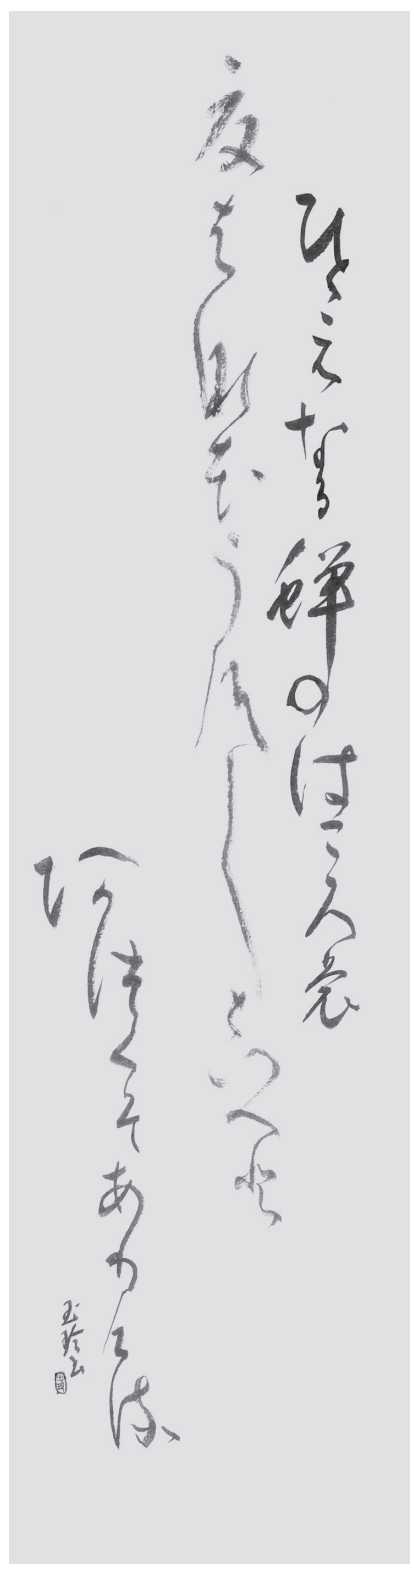 ひとえなる蝉のはころ裳
夏はなほうすしといへと
阿つくそありける